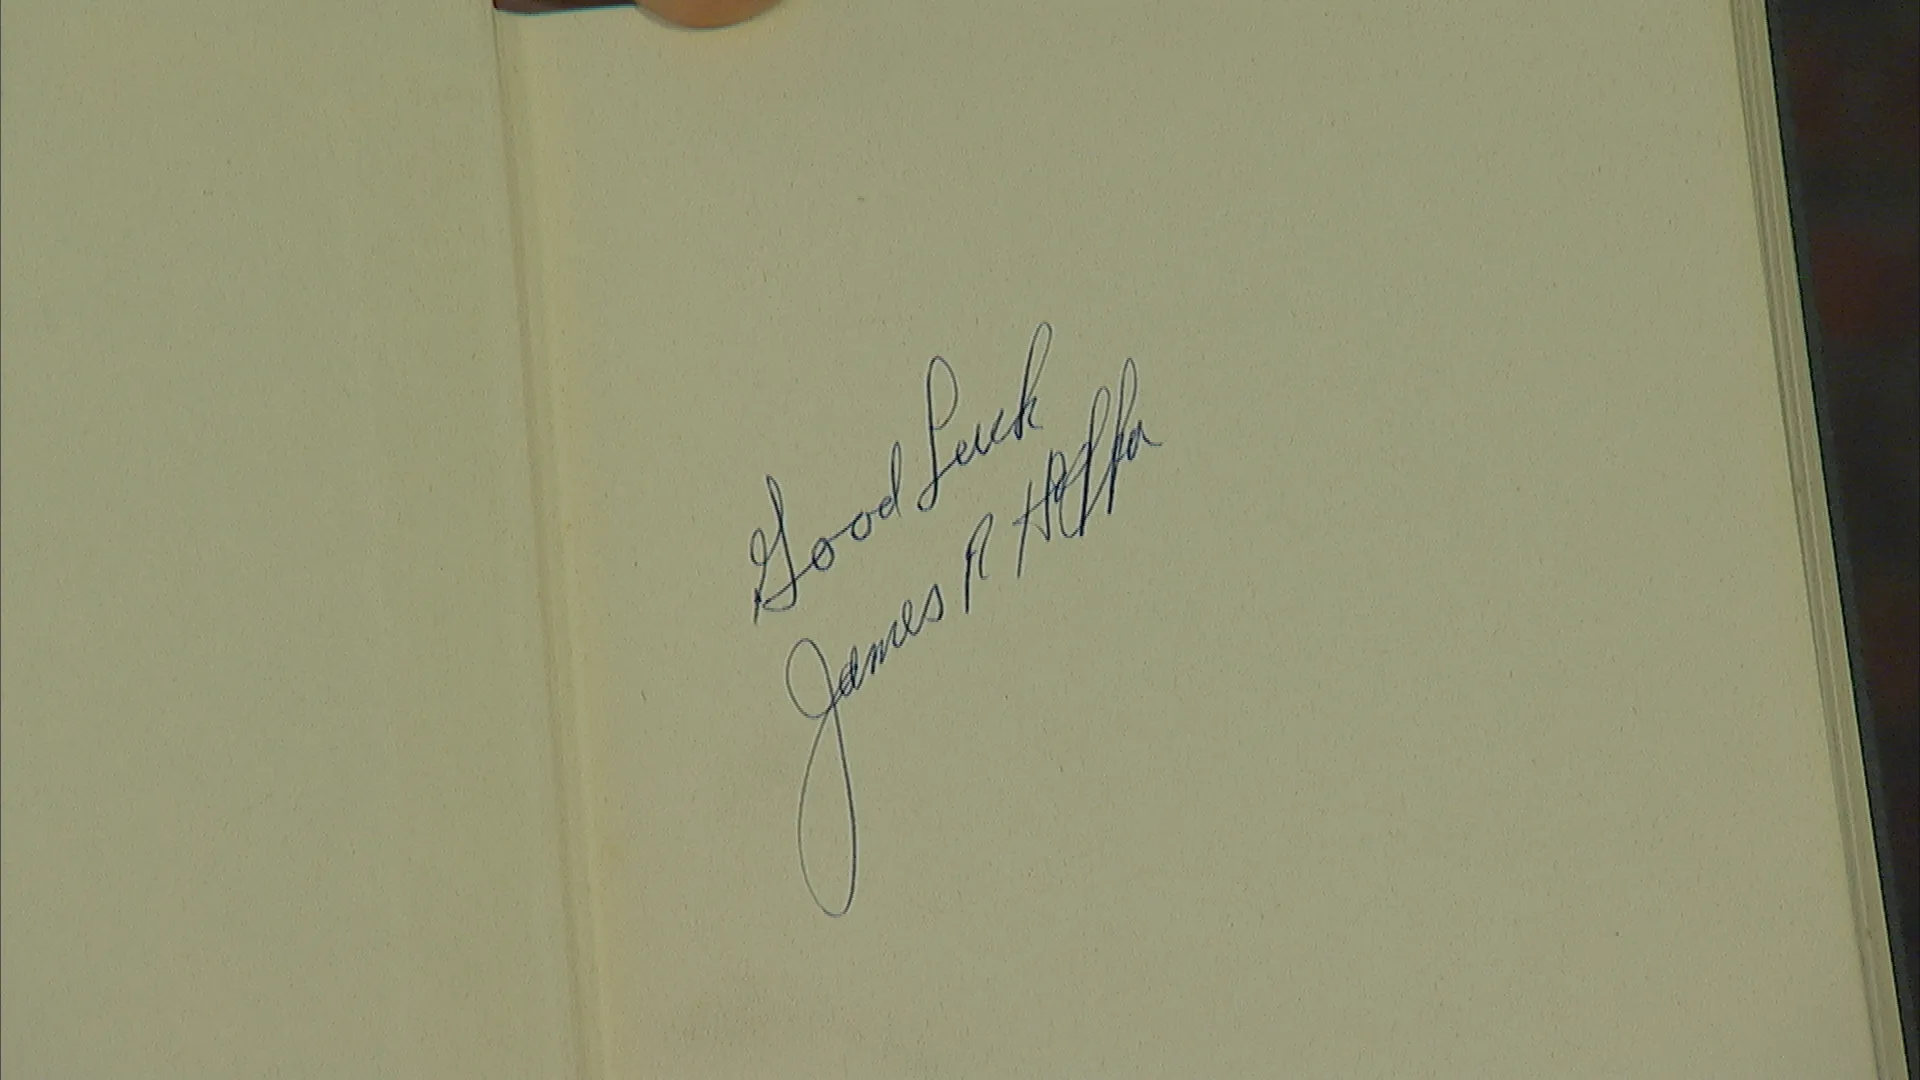 Good Luck
James R Hoffa